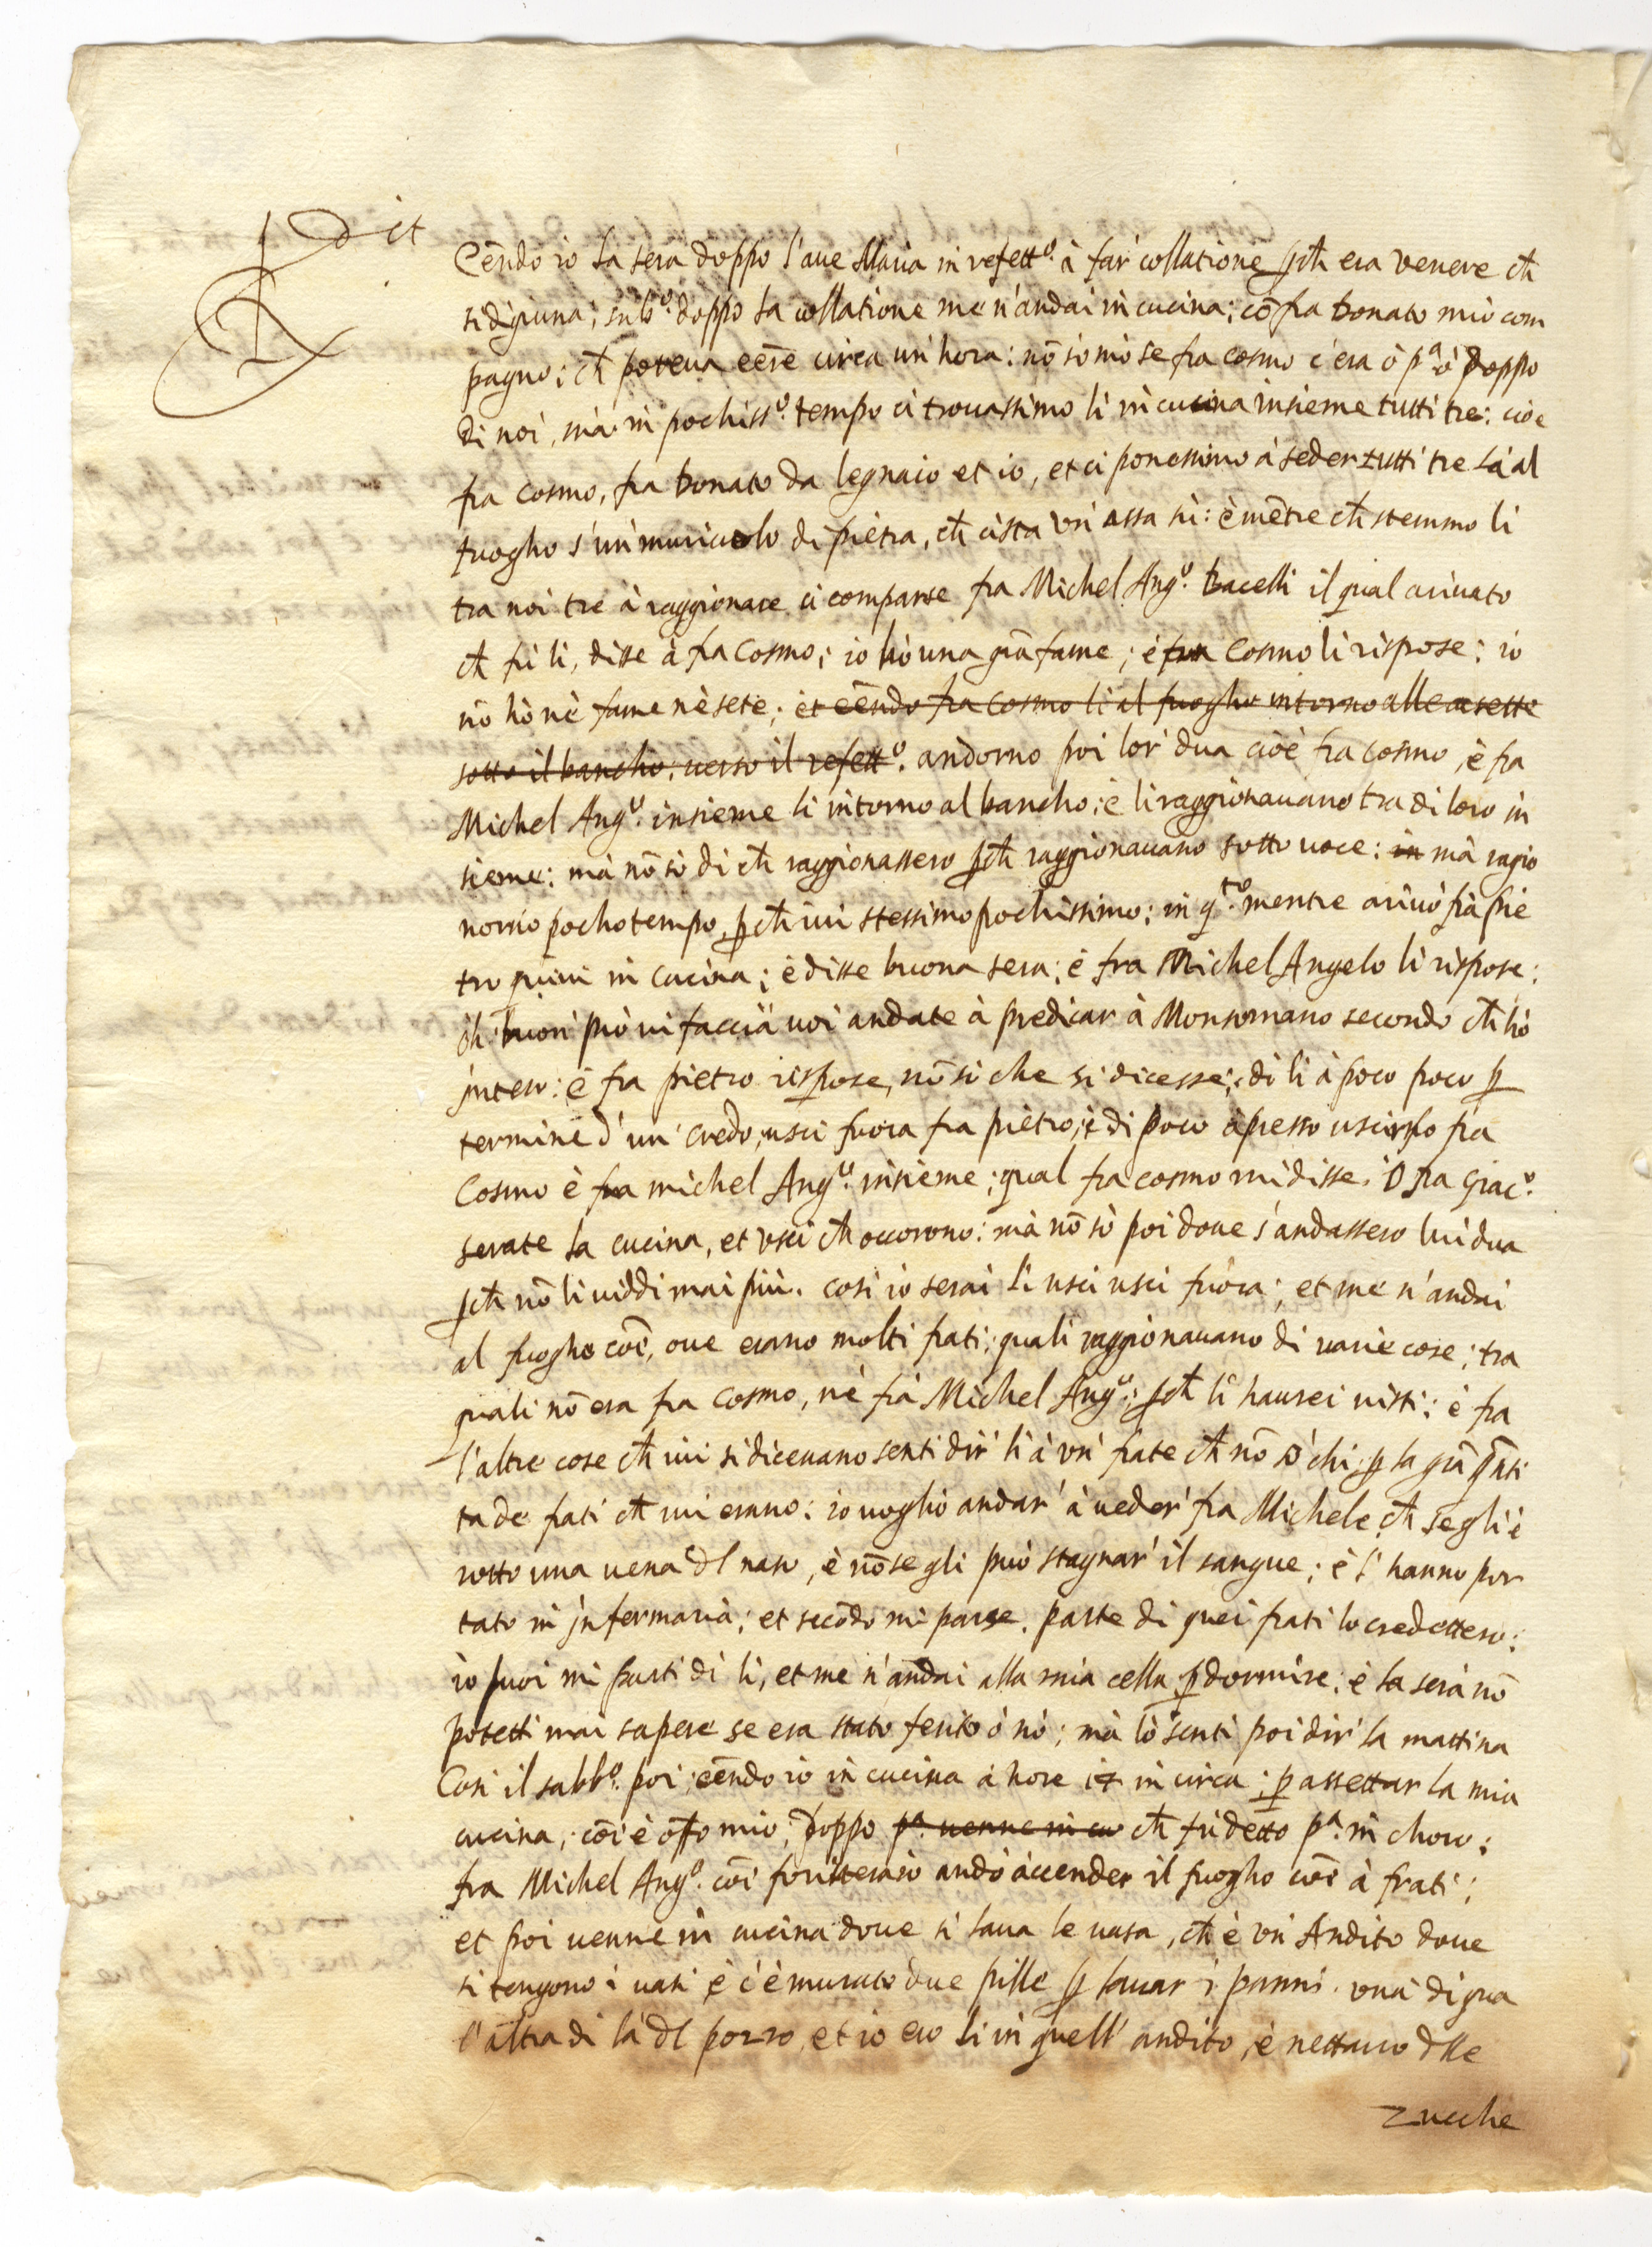 R dit
Eēndo io la sera doppo l'aue Maria in refettº. à far' collatione pch era venere ch
si digiuna; subº. doppo la collatione me n'andai in cucina; cō fra Donato mio com
pagno; ch poteua eēre circa un' hora: nō so mo se fra cosmo c'era ò pª ò doppo
di noi, mà in pochissº. tempo ci trouassimo li in cucina insieme tutti tre: cioe
fra cosmo, fra Donato da legnaio et io, et ci ponessimo à seder tutti tre là al
fuogho s'un muriciolo di pietra, ch ci sta un' assa sù: è mētre ch stemmo li
tra noi tre à raggionare ci comparse fra Michel Angº. bacelli il qual ariuato
ch fù li, disse à fra Cosmo; io hò una grā fame; è fra Cosmo li rispose: io
nō hò nè fame nè sete; et eēndo fra cosmo li al fuogho intorno alle casette
sotto il bancho, uerso il refettº. andorno poi lor' dua cioè fra cosmo, è fra
Michel Angº. insieme li intorno al bancho; è li raggionauano tra di loro in
sieme: mà nō sò di ch raggionassero pch raggionauano sotto uoce: in mà ragio
norno pocho tempo, pch iui stessimo pochissimo; in qto. mentre ariuò frà pie
tro in cucina; è disse buona sera; è fra Michel Angelo li rispose:
oh buon' prò ui faccia uoi andate à predicar à Monsomano secondo ch hò
inteso: è fra pietro rispose, nō sò che si dicesse; di li à poco poco p
termine d'un' credo, usci fuora fra pietro; è di poco apresso uscirno fra
Cosmo è fra michel Angº. insieme; qual fra cosmo mi disse. O fra Giacº.
serate la cucina, et usci ch occorono: mà nō sò poi doue s'andassero lui dua
pch nō li uiddi mai più. cosi io serai li usci usci fuora; et me n'andai
al fuogho coē, oue erano molti frati; quali raggionauano di uarie cose; tra
quali nō era fra Cosmo, nè frà Michel Angº.; pch li haurei uisti; è fra
l'altre cose ch iui si diceuano senti dir' li à un' frate ch nō sò chi, p la grā qnti
tade frati ch iui erano: io uoglio andar' à ueder' fra Michele, ch se gli è
rotto una uena dl naso, è nō se gli può stagnar' il sangue; è l' hanno por
tato in infermaria; et secōdo mi parse. parte di quei frati lo credettero;
io puoi mi parti di li, et me n'andai alla mia cella p dormire; è la sera nō
potetti mai sapere se era stato ferito ò nò; mà lò senti poi dir' la mattina
Cosi il sabbº. poi; eēndo io in cucina à hore in circa; p assettar la mia
cucina, cōi è offo mio; doppo pª. uenne in cu ch fù detto pª. in choro;
fra Michel Angº. cōi foristeraio andò àccender il fuogho coē à frati;
et poi uenne in cucina doue si laua le uasa, ch è un' Andito doue
si tengono i uasi è c'è murato due pille p lauar i panni. una di qua
l'altra di là dl pozzo, et io ero li in quell' andito, è nettauo dlle
zucche